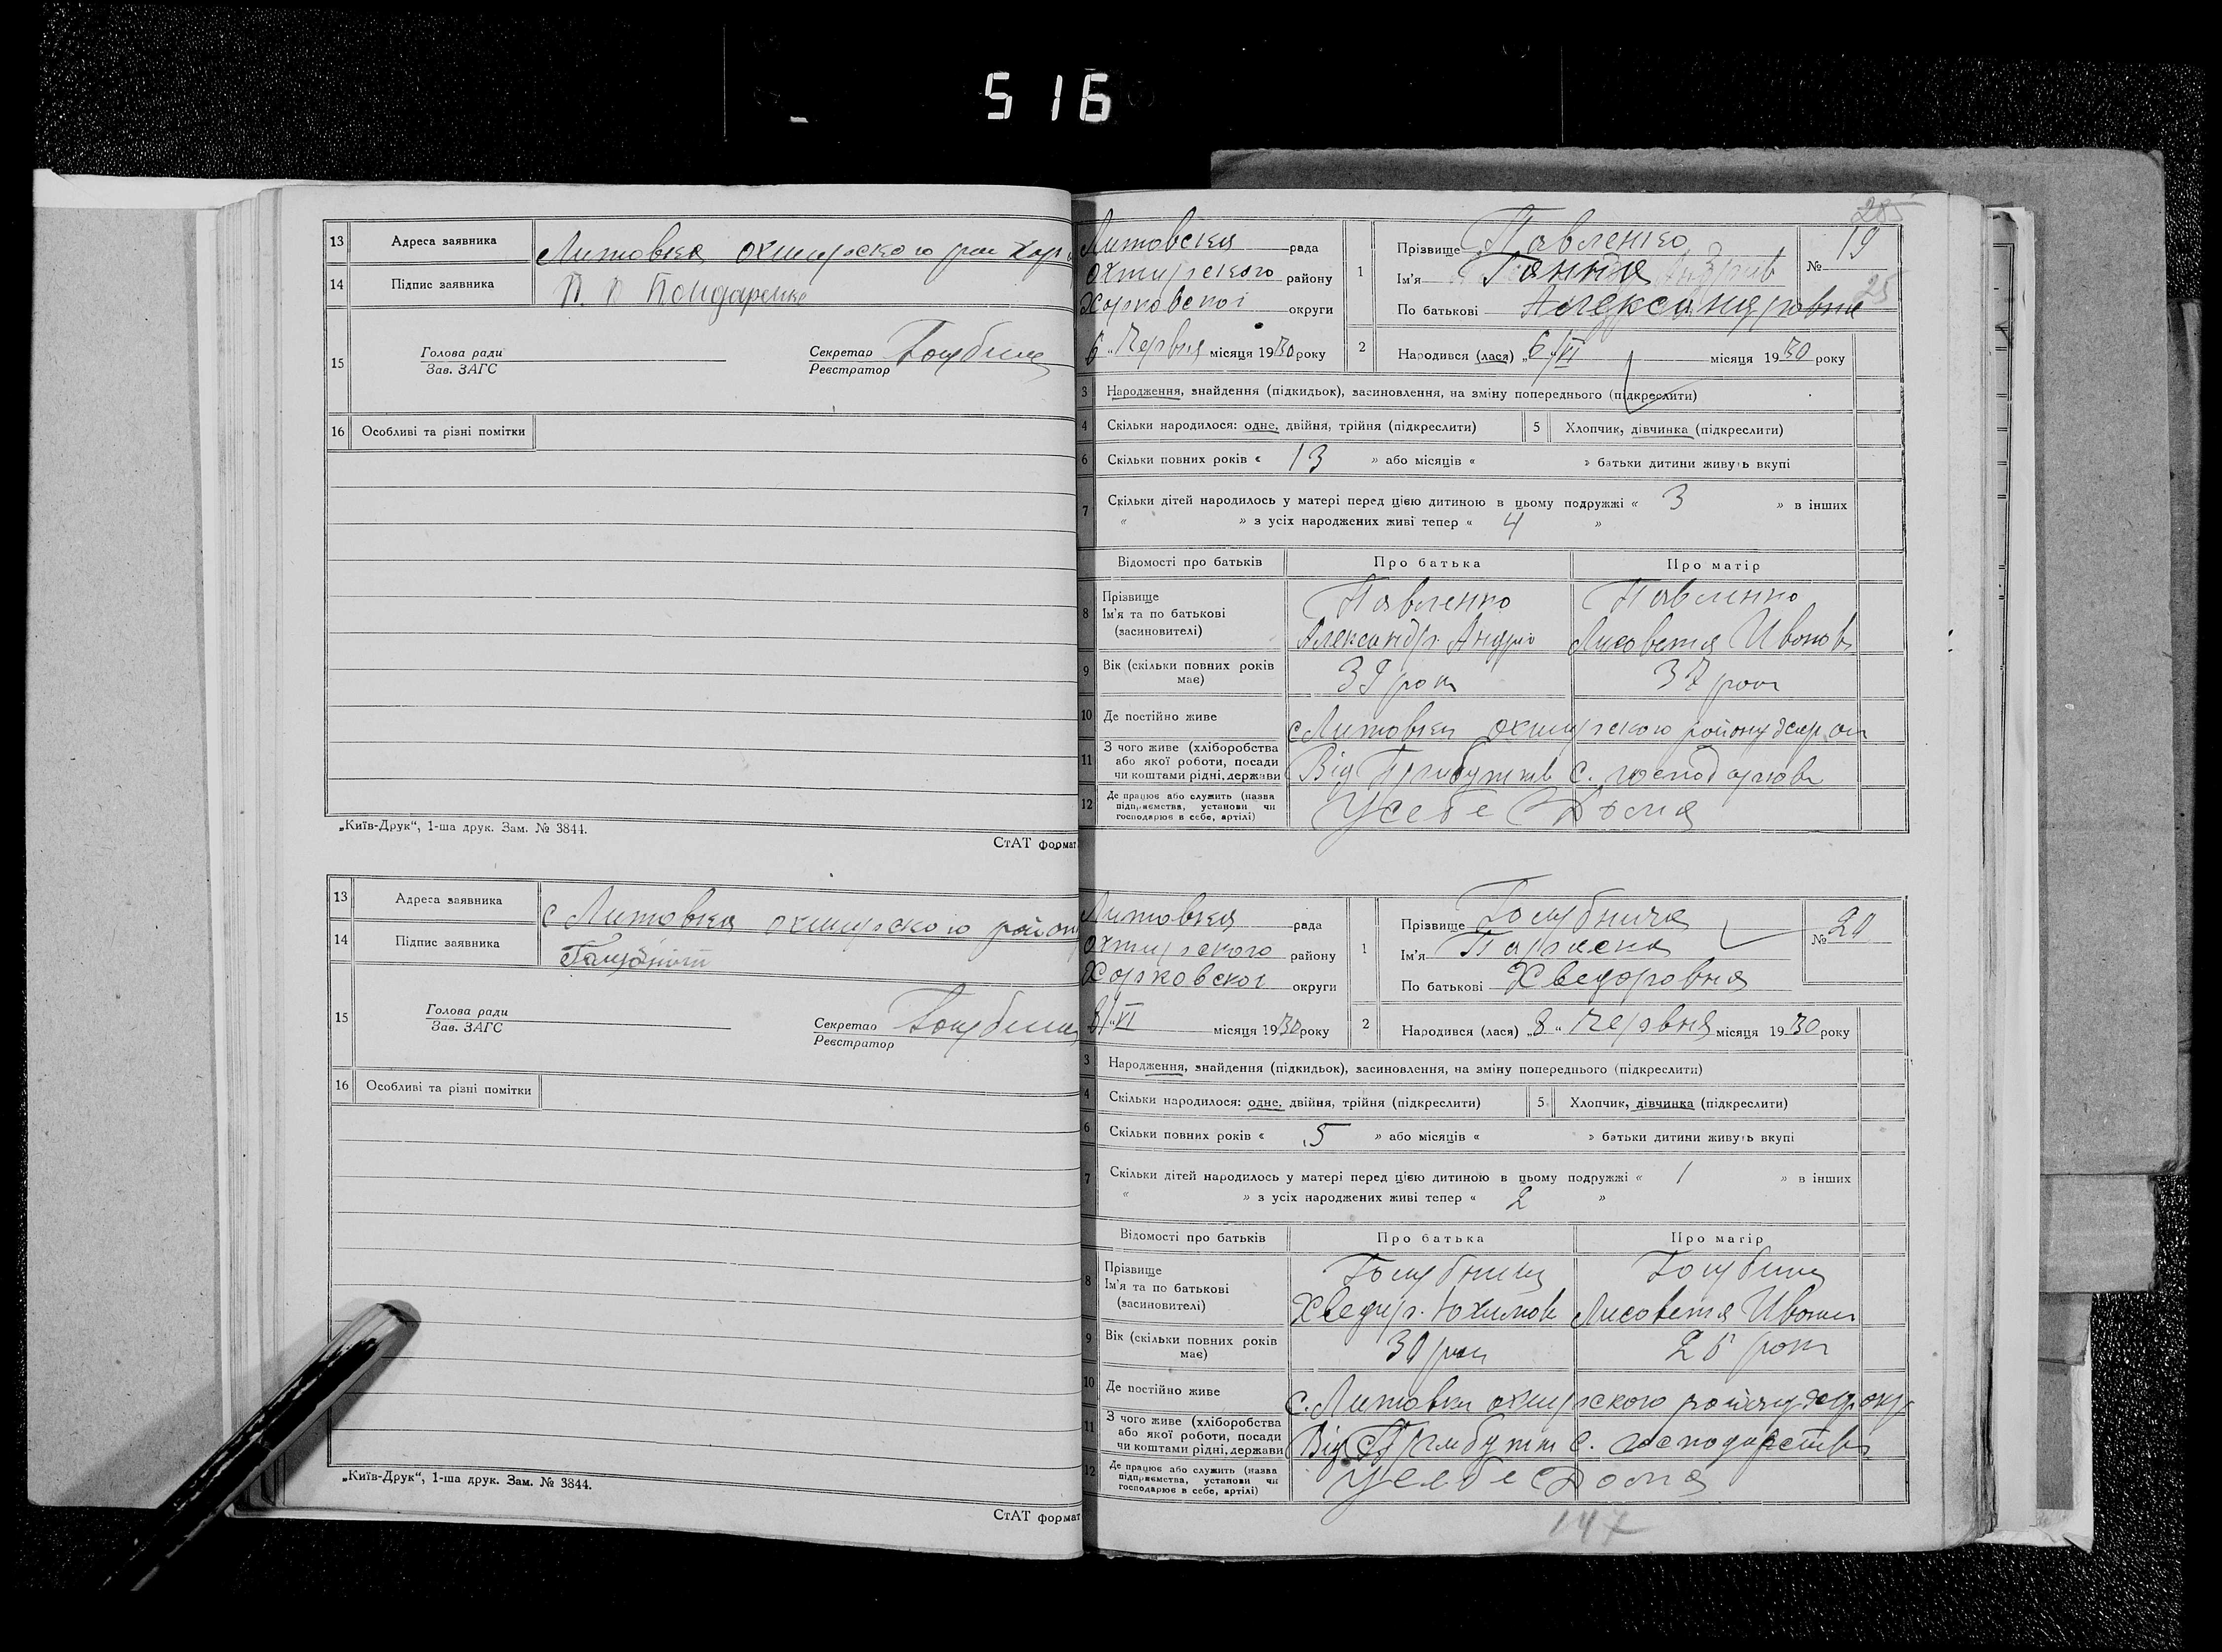 516
13 Адреса заявника Литовка охтирского рай Хар
14 Підпис заявника П. П Бондаренко
15 Голова ради Зав. ЗАГС Секретар Реєстратор
16 Особливі та різні помітки
„Київ-Друк“, 1-ша друк. Зам. № 3844.
СтАТ формат
13 Адреса заявника с Литовка охтирского район
14 Підпис заявника
15 Голова ради Зав. ЗАГС Секретар Реєстратор
16 Особливі та різні помітки
„Київ-Друк“, 1-ша друк. Зам. № 3844.
СтАТ формат
285
Литовска рада
охтирского району
Харковскої округи
6 „ Червня місяця 1930 року
1 Прізвище Павленко
Ім'я Ганна
По батькові Александровна
№ 19
25
2 Народився (лася) „6/VI місяця 1930 року
3 Народження, знайдення (підкидьок), засиновлення, на зміну попереднього (підкреслити)
4 Скільки народилося: одне, двійня, трійня (підкреслити) 5 Хлопчик, дівчинка (підкреслити)
6 Скільки повних років « 13 » або місяців « » батьки дитини живуть вкупі
7 Скільки дітей народилось у матері перед цією дитиною в цьому подружжі « 3 » в інших
« » з усіх народжених живі тепер « 4 »
Відомості про батьків Про батька Про матір
8 Прізвище Ім'я та по батькові (засиновителі)
Павленко Павленко
Александр. Андрів Лисаветя Ивонов
9 Вік (скільки повних років має) 39 рок 37 рок
10 Де постійно живе с Литовки охтирского району хар ок
11 З чого живе (хліборобства або якої роботи, посади чи коштами рідні, держави
Від Прибутків с. господарства
12 Де працює або служить (назва підприємства, установи чи господарює в себе, артілі)
У себе Дома
Литовска рада
охтирского району
Харковскої округи
8/„VI місяця 1930 року
1 Прізвище Голубнича
Ім'я Параска
По батькові Хведоровна
№ 20
2 Народився (лася) „8 „ Червня місяця 1930 року
3 Народження, знайдення (підкидьок), засиновлення, на зміну попереднього (підкреслити)
4 Скільки народилося: одне, двійня, трійня (підкреслити) 5 Хлопчик, дівчинка (підкреслити)
6 Скільки повних років « 5 » або місяців « » батьки дитини живуть вкупі
7 Скільки дітей народилось у матері перед цією дитиною в цьому подружжі « 1 » в інших
« » з усіх народжених живі тепер « 2 »
Відомості про батьків Про батька Про матір
8 Прізвище Ім'я та по батькові (засиновителі)
Хведир. Юхимов Лисаветя Ивонов
9 Вік (скільки повних років має) 30 рок 26 рок
10 Де постійно живе с. Литовки охтирского району хар окр
11 З чого живе (хліборобства або якої роботи, посади чи коштами рідні, держави
Від Прибутк с. господарства
12 Де працює або служить (назва підприємства, установи чи господарює в себе, артілі)
У себе Дома
147